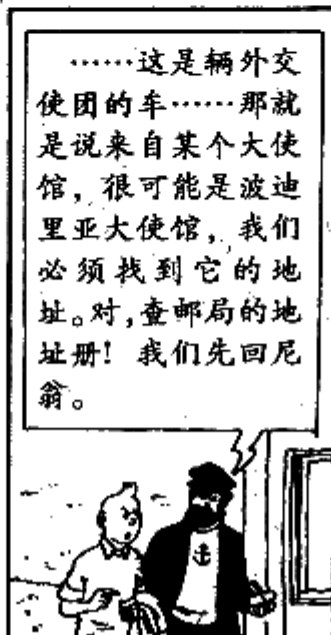 ……这是辆外交
使团的车……那就
是说来自某个大使
馆，很可能是波迪
里亚大使馆，我们
必须找到它的地
址。对，查邮局的地
址册！我们先回尼
翁。